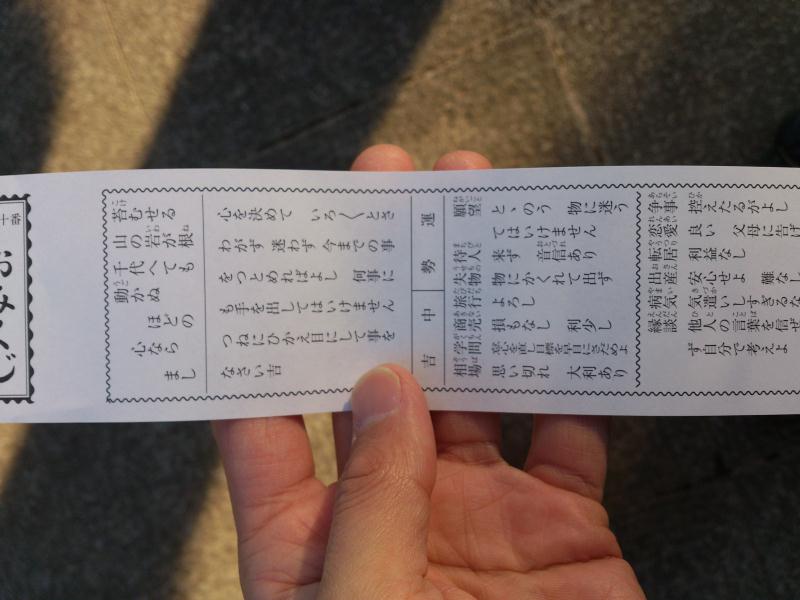 おみくじ
苔むせる
山の岩が根
千代へても
動かぬ
ほどの
心なら
まし
心を決めて いろ〱とさ
わがず 迷わず 今までの事
をつとめればよし 何事に
も手を出してはいけません
つねにひかえ目にして事を
なさい吉
運勢 中吉
願望 とゝのう 物に迷う
てはいけません
待人 来ず 音信あり
失物 物にかくれて出ず
旅行 よろし
商売 損もなし 利少し
学問 心を直し目標を早目にさだめよ
相場 思い切れ 大利あり
争事 控えたるがよし
恋愛 良い 父母に告げ
転居 利益なし
お産 安心せよ 難なし
病気 気遣いしすぎるな
縁談 他人の言葉を信ぜ
ず自分で考えよ